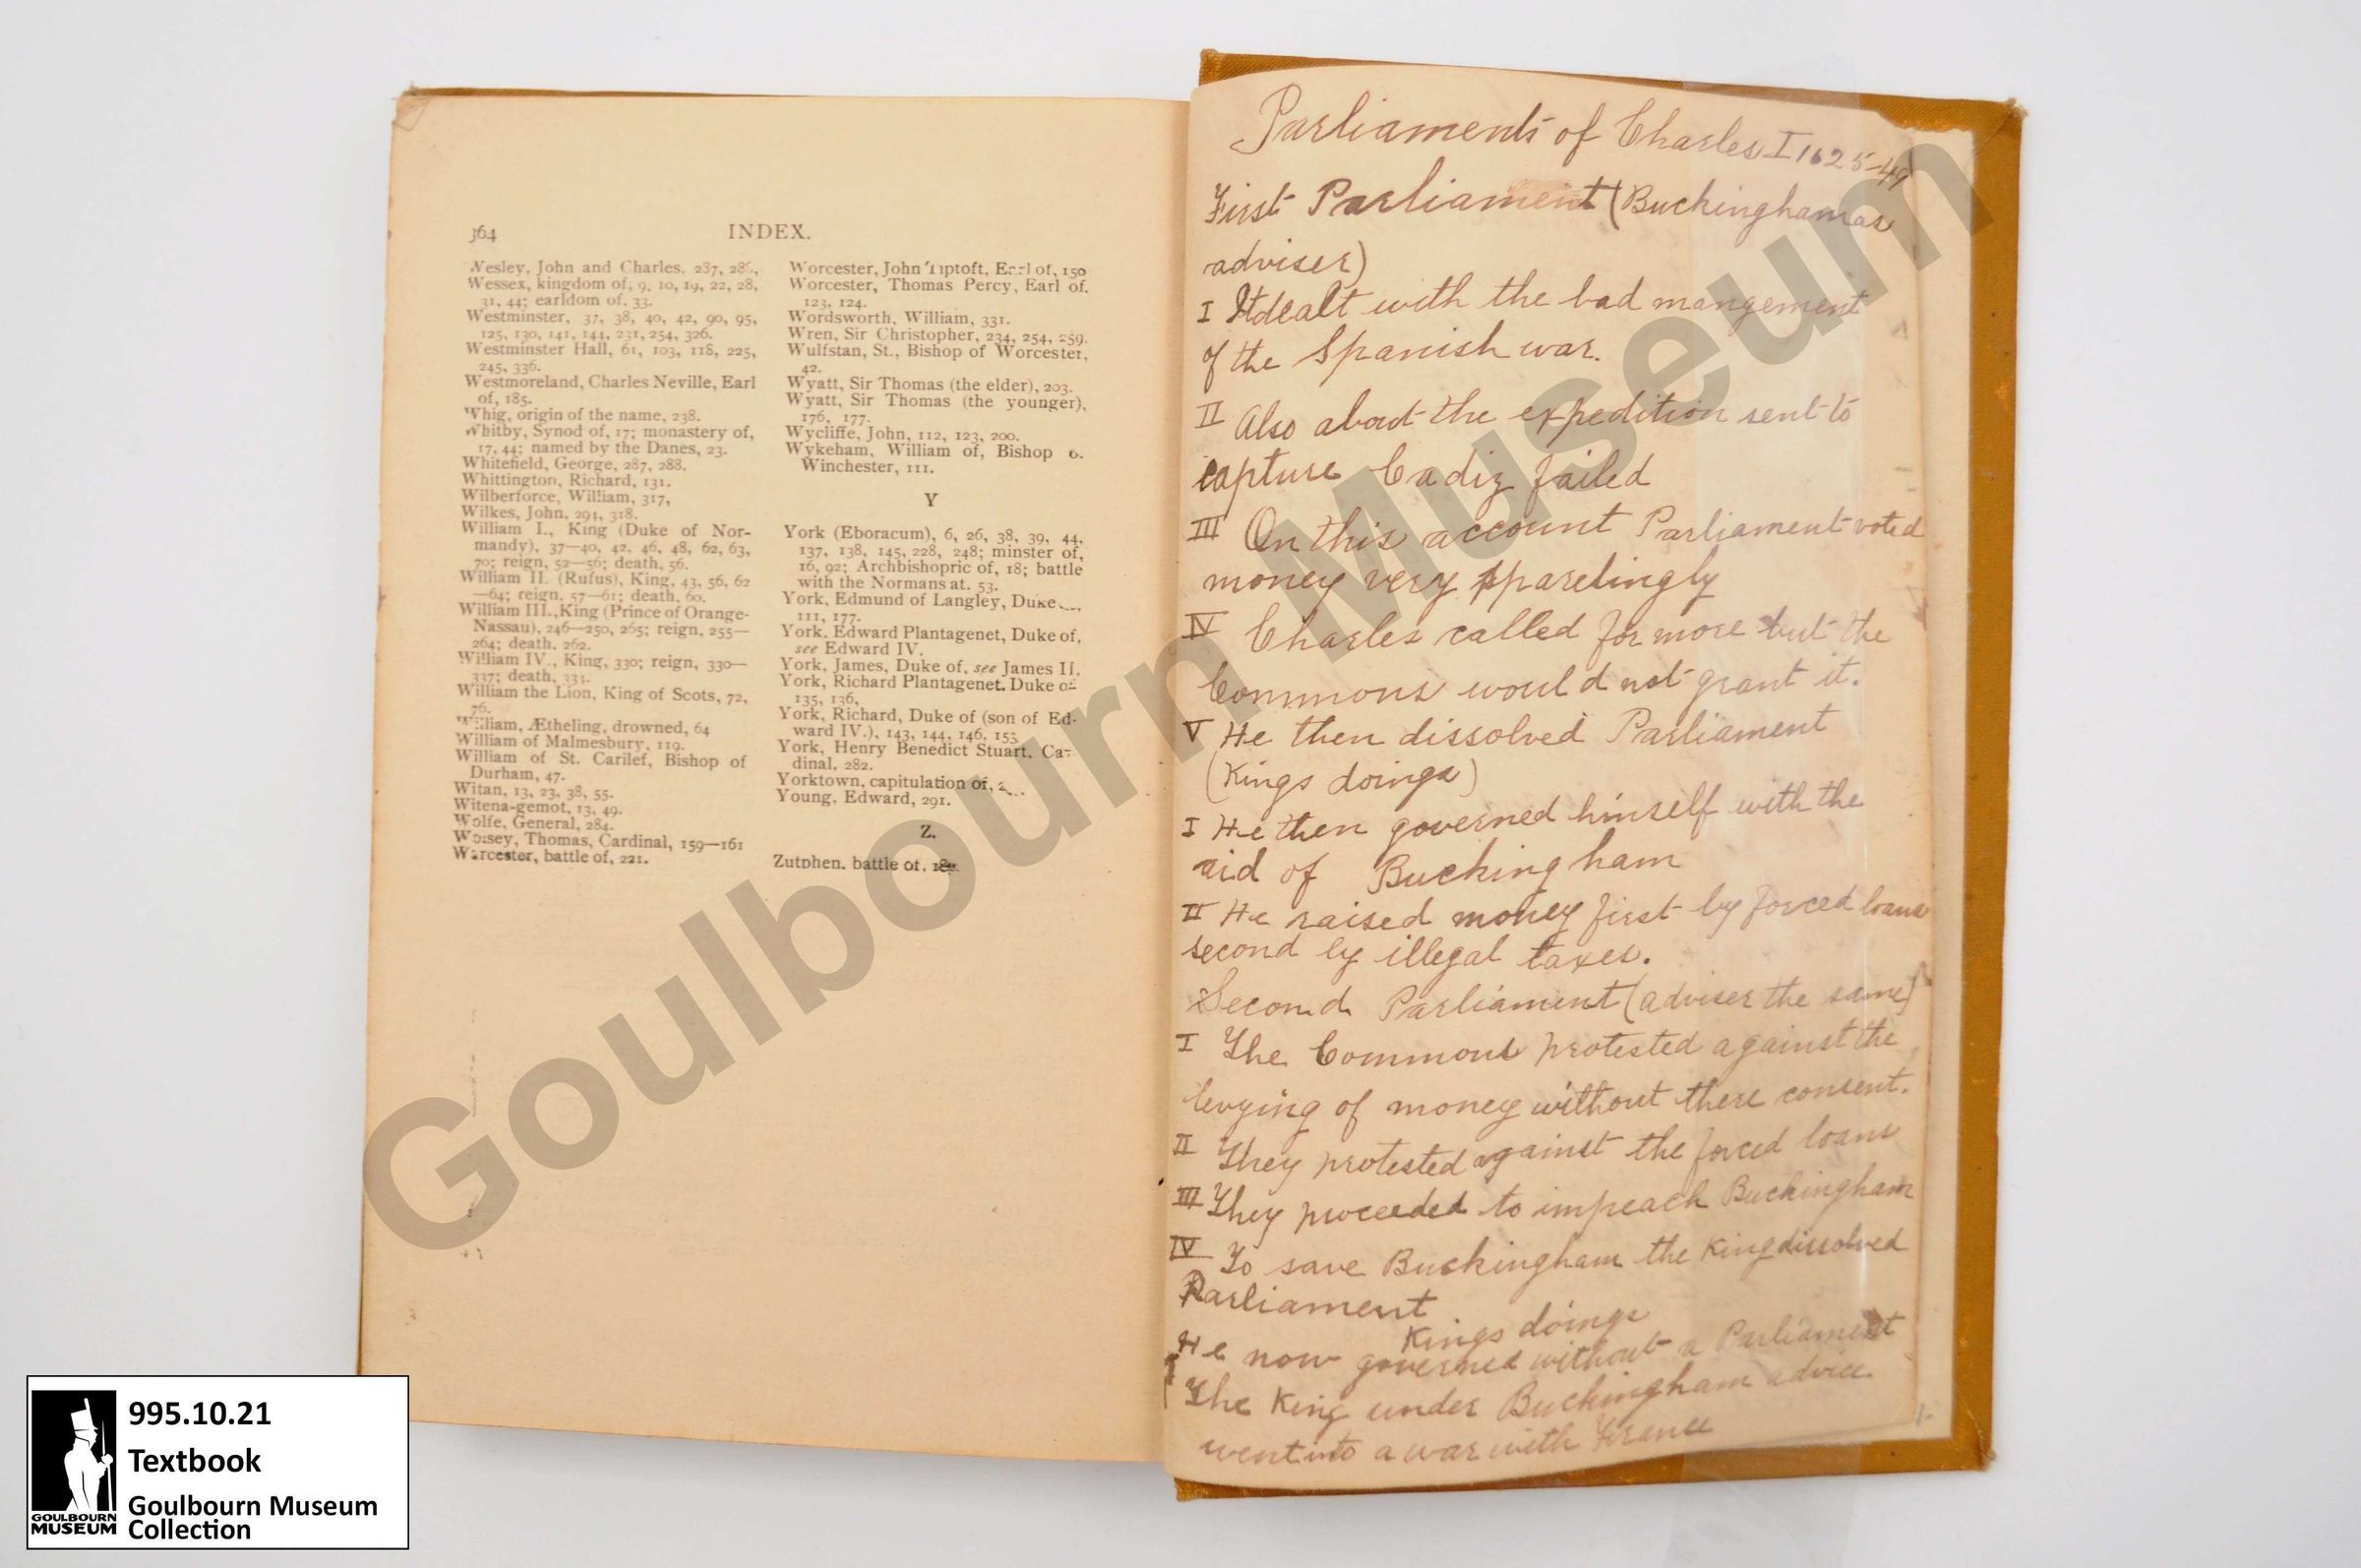 364
INDEX.
Wesley, John and Charles, 287, 28
Wessex, kingdom of, 9, 10, 19, 22, 28,
31, 44; earldom of, 33.
Westminster, 37, 38, 40, 42, 90, 95,
125, 130, 141, 144, 231, 254, 326.
Westminster Hall, 61, 103, 118, 225,
245, 336.
Westmoreland, Charles Neville, Earl
of, 185.
Whig, origin of the name, 238.
Whitby, Synod of, 17; monastery of,
17, 44; named by the Danes, 23.
Whitefield, George, 287, 288.
Whittington, Richard, 131.
Wilberforce, William, 317,
Wilkes, John, 294, 318.
William I., King (Duke of Nor-
mandy), 37—40, 42, 46, 48, 62, 63,
70; reign, 52—56; death, 56.
William II. (Rufus), King, 43, 56, 62
—64; reign, 57—61; death, 60.
William III., King (Prince of Orange-
Nassau), 246—250, 265; reign, 255—
264; death, 262.
William IV., King, 330; reign, 330—
337; death, 331.
William the Lion, King of Scots, 72,
76.
William, Ætheling, drowned, 64
William of Malmesbury, 119.
William of St. Carilef, Bishop of
Durham, 47.
Witan, 13, 23, 38, 55.
Witena-gemot, 13, 49.
Wolfe, General, 284.
Wolsey, Thomas, Cardinal, 159—161
Worcester, battle of, 221.
Worcester, John Tiptoft, Earl of, 150
Worcester, Thomas Percy, Earl of,
123, 124.
Wordsworth, William, 331.
Wren, Sir Christopher, 234, 254, 259.
Wulfstan, St., Bishop of Worcester,
42.
Wyatt, Sir Thomas (the elder), 203.
Wyatt, Sir Thomas (the younger),
176, 177.
Wycliffe, John, 112, 123, 200.
Wykeham, William of, Bishop o.
Winchester, 111.
Y
York (Eboracum), 6, 26, 38, 39, 44,
137, 138, 145, 228, 248; minster of,
16, 92; Archbishopric of, 18; battle
with the Normans at, 53.
York, Edmund of Langley, Duke
111, 177.
York, Edward Plantagenet, Duke of,
see Edward IV.
York, James, Duke of, see James II.
York, Richard Plantagenet, Duke of
135, 136,
York, Richard, Duke of (son of Ed-
ward IV.), 143, 144, 146, 153
York, Henry Benedict Stuart, Ca-
dinal, 282.
Yorktown, capitulation of,
Young, Edward, 291.
Z.
Zutphen, battle of,
Parliaments of Charles I 1625-49
First Parliament (Buckingham as
adviser)
I It dealt with the bad mangement
of the Spanish war.
II Also about the expedition sent to
capture Cadiz failed
III On this account Parliament voted
money very sparelingly
IV Charles called for more but the
Commons would not grant it.
V He then dissolved Parliament
(Kings doings)
I He then governed himself with the
aid of Buckingham
II He raised money first by forced loans
second by illegal taxes.
Second Parliament (adviser the same)
I The Commons protested against the
levying of money without there consent.
II They protested against the forced loans
III They proceeded to impeach Buckingham
IV To save Buckingham the King dissolved
Parliament
Kings doings
He now governed without a Parliament
The King under Buckingham advice
went into a war with France
Goulbourn Museum
995.10.21
Textbook
Goulbourn Museum
Collection
GOULBOURN
MUSEUM